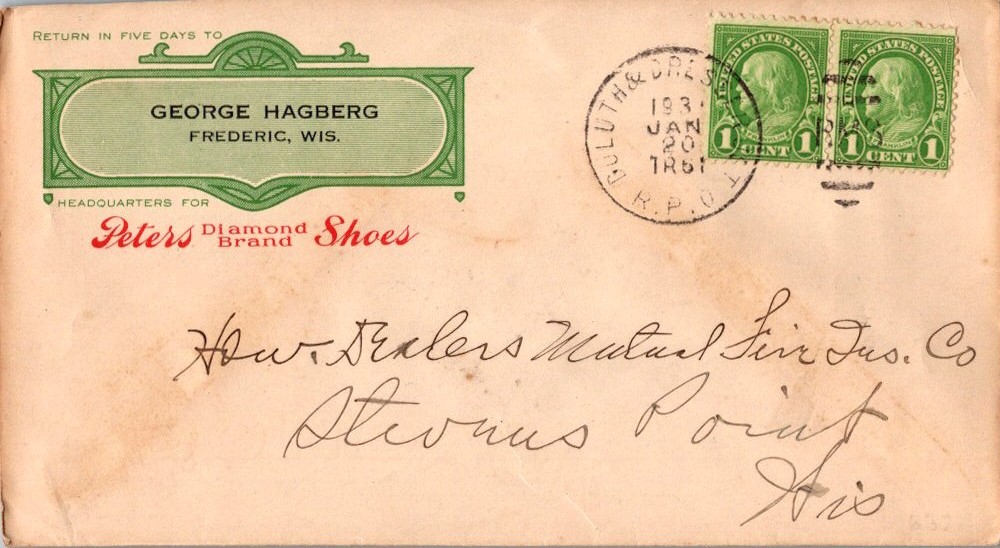 RETURN IN FIVE DAYS TO
GEORGE HAGBERG
FREDERIC, WIS.
HEADQUARTERS FOR
Peters Diamond Brand Shoes
DULUTH &
R.P.O.
193
JAN
20
TR61
UNITED STATES POSTAGE
FRANKLIN
1 CENT 1
UNITED STATES POSTAGE
FRANKLIN
1 CENT 1
How. Dealers Mutual Fire Ins. Co
Stevens Point
Wis